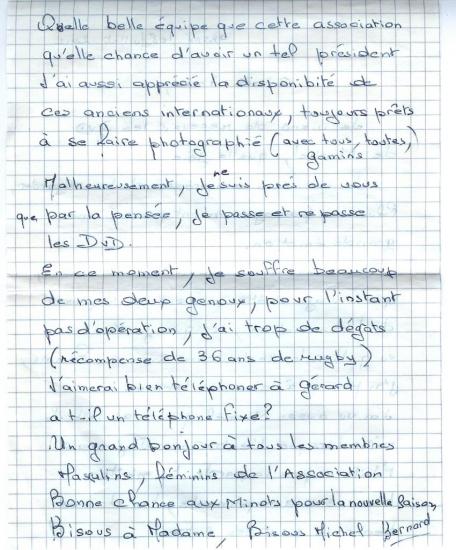 Quelle belle équipe que cette association
qu'elle chance d'avoir un tel président
J'ai aussi apprécié la disponibité de
ces anciens internationaux, toujours prêts
à se faire photographié (avec tous, toutes,)
gamins
Malheureusement, je ne suis près de vous
que par la pensée, je passe et repasse
les DVD.
En ce moment, je souffre beaucoup
de mes deux genoux, pour l'instant
pas d'opération, j'ai trop de dégats
(récompense de 36 ans de rugby)
J'aimerai bien téléphoner à gérard
a t-il un téléphone fixe?
Un grand bonjour à tous les membres
Masculins, féminins de l'Association
Bonne chance aux Minots pour la nouvelle Saison
Bisous à Madame, Bisous Michel Bernard